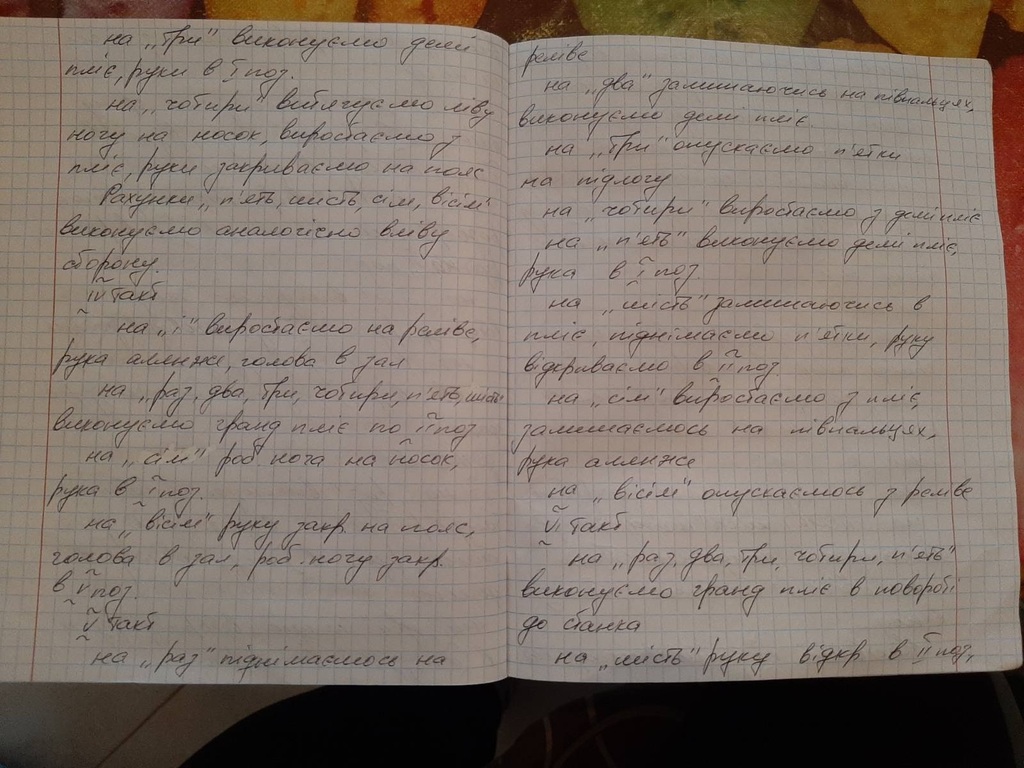 на „три" виконуємо демі
пліє, руки в I поз.
на „чотири" витягуємо ліву
ногу на носок, виростаємо з
пліє, руки закриваємо на пояс
Рахунки „п'ять, шість, сім, вісім"
виконуємо аналогічно вліву
сторону.
IV такт
на „і" виростаємо на релівє,
рука алянже, голова в зал
на „раз, два, три, чотири, п'ять, шість"
виконуємо гранд пліє по II поз
на „сім" роб. нога на носок,
рука в I поз.
на „вісім" руку закр. на пояс,
голова в зал, роб. ногу закр.
в V поз.
V такт
на „раз" піднімаємось на
релівє
на „два" залишаючись на півпальцях,
виконуємо демі пліє
на „три" опускаємо п'ятки
на підлогу
на „чотири" виростаємо з демі пліє
на „п'ять" виконуємо демі пліє,
рука в I поз
на „шість" залишаючись в
пліє, піднімаємо п'ятки, руку
відкриваємо в II поз
на „сім" виростаємо з пліє,
залишаємось на півпальцях,
рука алянже
на „вісім" опускаємось з релівє
VI такт
на „раз, два, три, чотири, п'ять"
виконуємо гранд пліє в повороті
до станка
на „шість" руку відкр. в II поз,